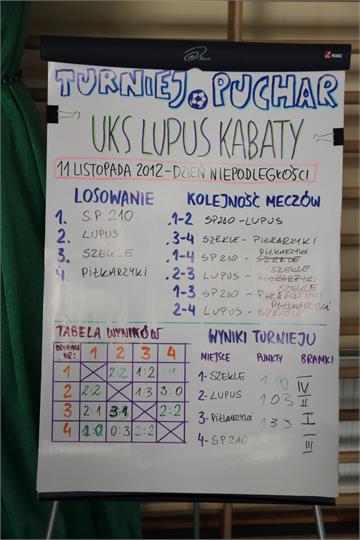 NOBO
TURNIEJ O PUCHAR
UKS LUPUS KABATY
11 LISTOPADA 2012 - DZIEŃ NIEPODLEGŁOŚCI
LOSOWANIE
1. S.P 210
2. LUPUS
3. SZEKLE
4. PIŁKARZYKI
KOLEJNOŚĆ MECZÓW
1-2 SP210 - LUPUS
3-4 SZEKLE - PIŁKARZYKI
1-4 SP210 - PIŁKARZYKI
2-3 LUPUS - SZEKLE
1-3 SP210 - SZEKLE
2-4 LUPUS - PIŁKARZYKI
TABELA WYNIKÓW
DRUŻYNA NR: 1 2 3 4
1 2:2 1:2
2 2:2 1:3 3:0
3 2:1 3:1 2:2
4 1:0 0:3 2:2
WYNIKI TURNIEJU
MIEJSCE PUNKTY BRAMKI
1- SZEKLE IV
2- LUPUS 1 0 3 II
3- PIŁKARZYKI 1 3 3 I
4- SP210 III